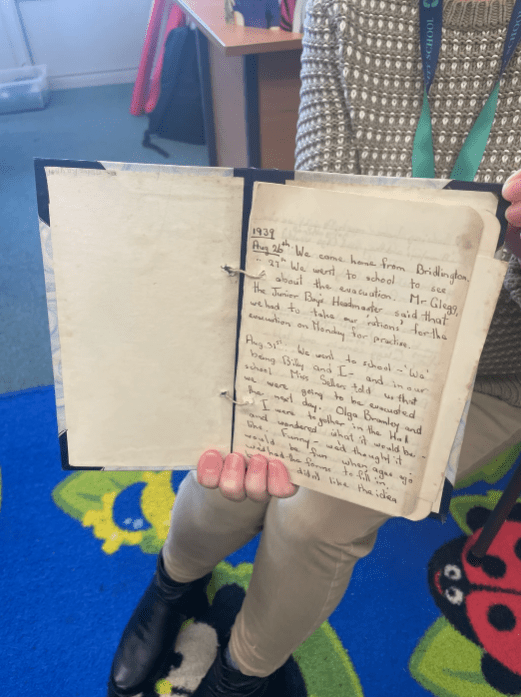 SCHOOL
1939
Aug 26th We came home from Bridlington
" 27th We went to school to see
about the evacuation. Mr Glegg,
the Junior Boys Headmaster said that
we had to take our 'rations' for the
evacuation on Monday for practise.
Aug. 31st We went to school - 'We'
being Billy and I - and in our
school Miss Sellers told us that
we were going to be evacuated
the next day. Olga Bramley and
I were together in the Hall
and wondered what it would be
like. Funny - we'd thought it
would be fun when ages ago
we'd had the forms to fill in
didn't like the idea